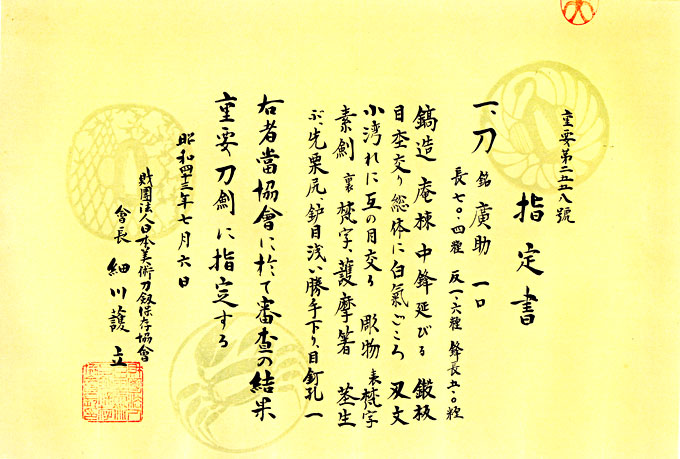 重要第二五五八號
指定書
一、刀 銘 廣助 一口
長七〇・四糎 反一・六糎 鋒長五・〇糎
鎬造 庵棟 中鋒延びる 鍛板
目杢交り総体に白氣ごころ 刃文
小湾れに互の目交る 彫物 表梵字
素劍 裏梵字、護摩箸 茎生
ぶ、先栗尻、鑢目浅い勝手下り、目釘孔一
右者當協會に於て審査の結果
重要刀劍に指定する
昭和四十三年七月六日
財團法人日本美術刀剣保存協會
會長 細川護立